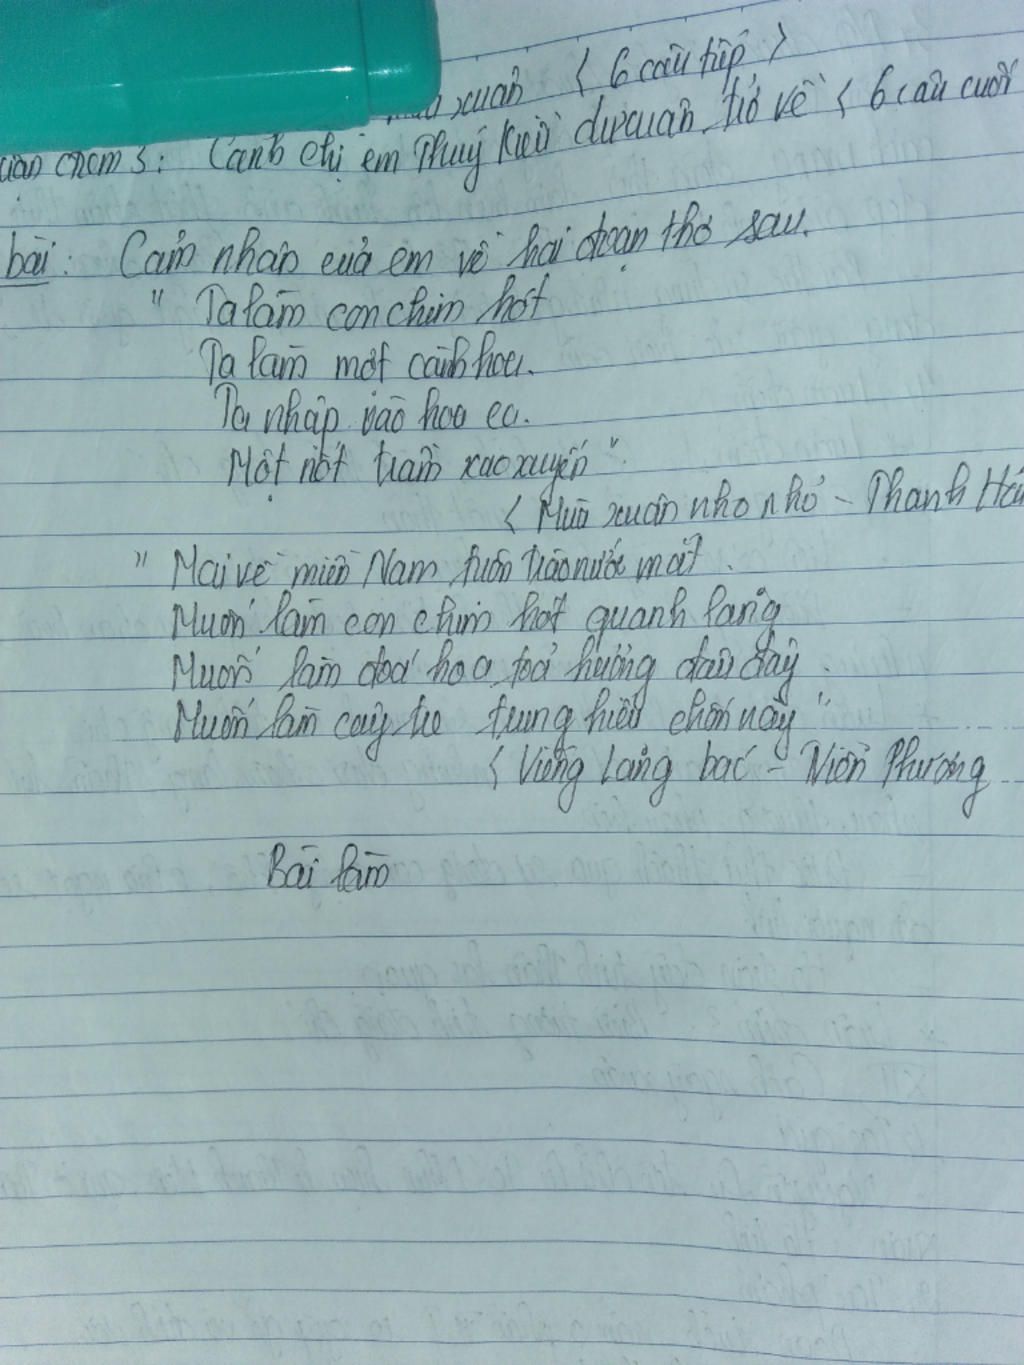 xuân < 6 câu tiếp >
chem 3: Cảnh chị em Thuý Kiều du xuân trở về < 6 câu cuối
bài: Cảm nhận của em về hai đoạn thơ sau.
" Ta làm con chim hót
Ta làm một cành hoa.
Ta nhập vào hoa ca.
Một nốt trầm xao xuyến ".
< Mùa xuân nho nhỏ - Thanh Hải
" Mai về miền Nam tuôn trào nước mắt.
Muốn làm con chim hót quanh lăng
Muốn làm đoá hoa toả hương đâu đây.
Muốn làm cây tre trung hiếu chốn này "
< Viếng Lăng bác - Viễn Phương
Bài làm